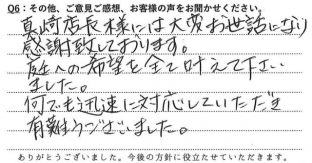 Q6：その他、ご意見ご感想、お客様の声をお聞かせください。
真崎店長様には大変お世話になり
感謝致しております。
庭への希望を全て叶えて下さい
ました。
何でも迅速に対応していただき
有難うございました。
ありがとうございました。今後の方針に役立たせていただきます。